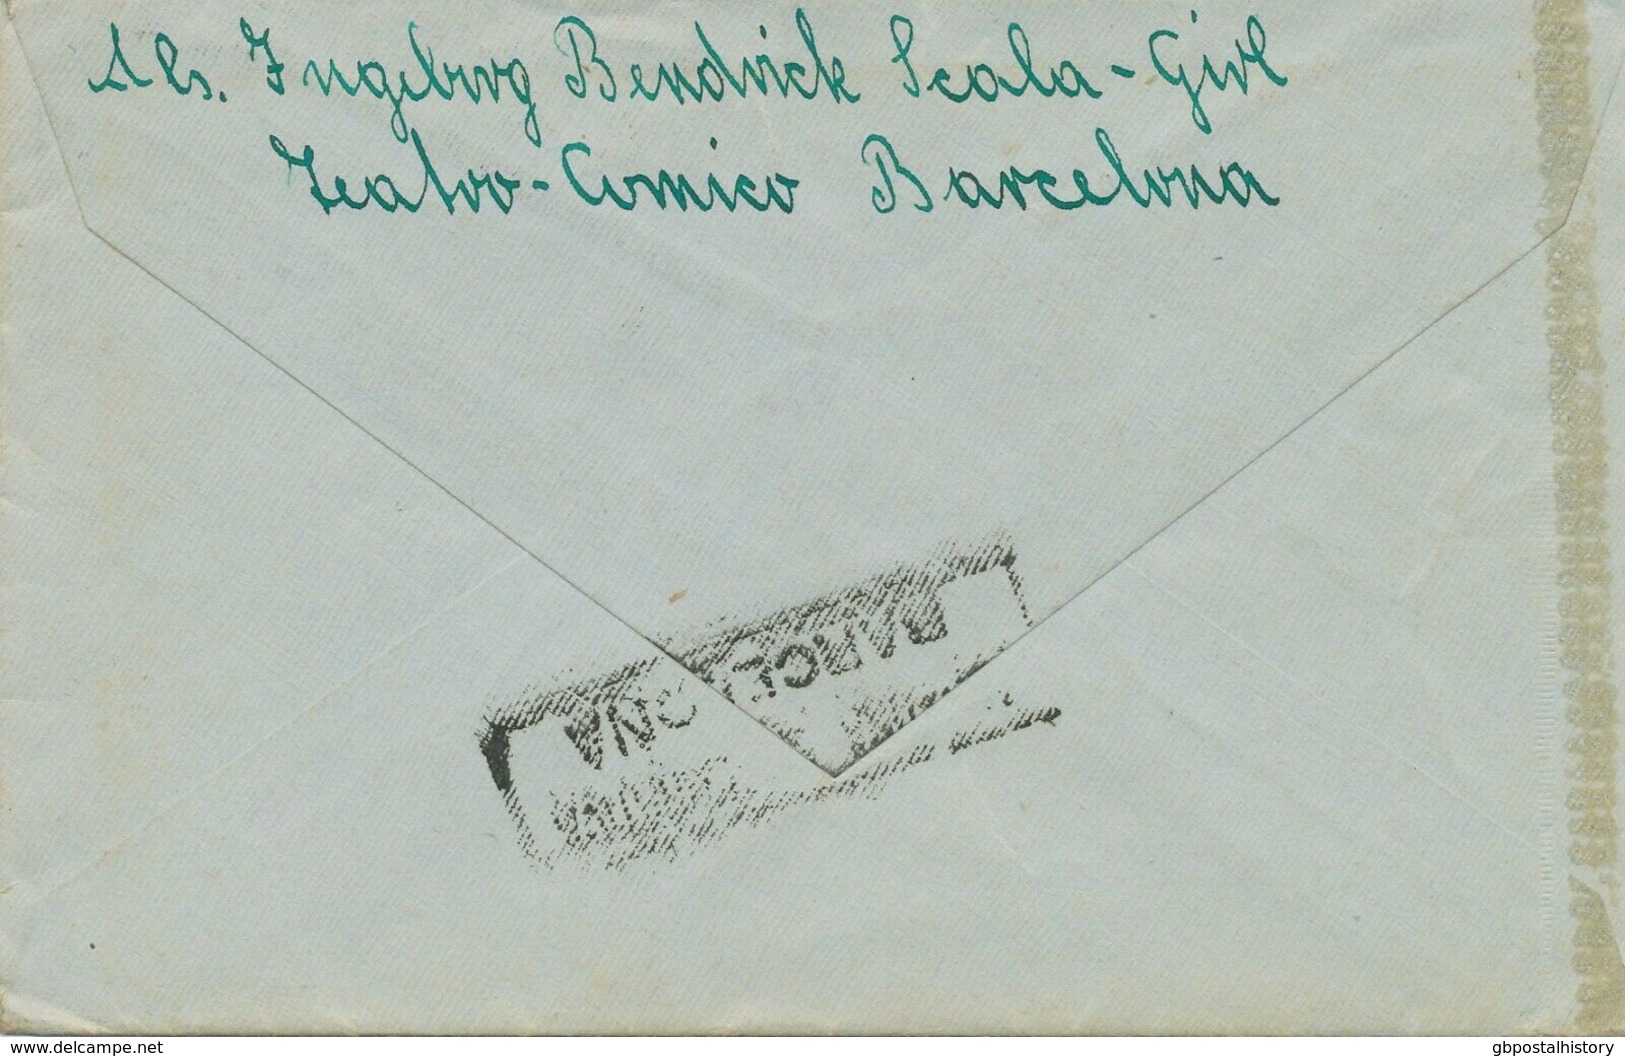 Abs. Ingeborg Bendvick Scala-Girl
Teatro-Comico Barcelona
BARCELONA
www.delcampe.net
gbpostalhistory